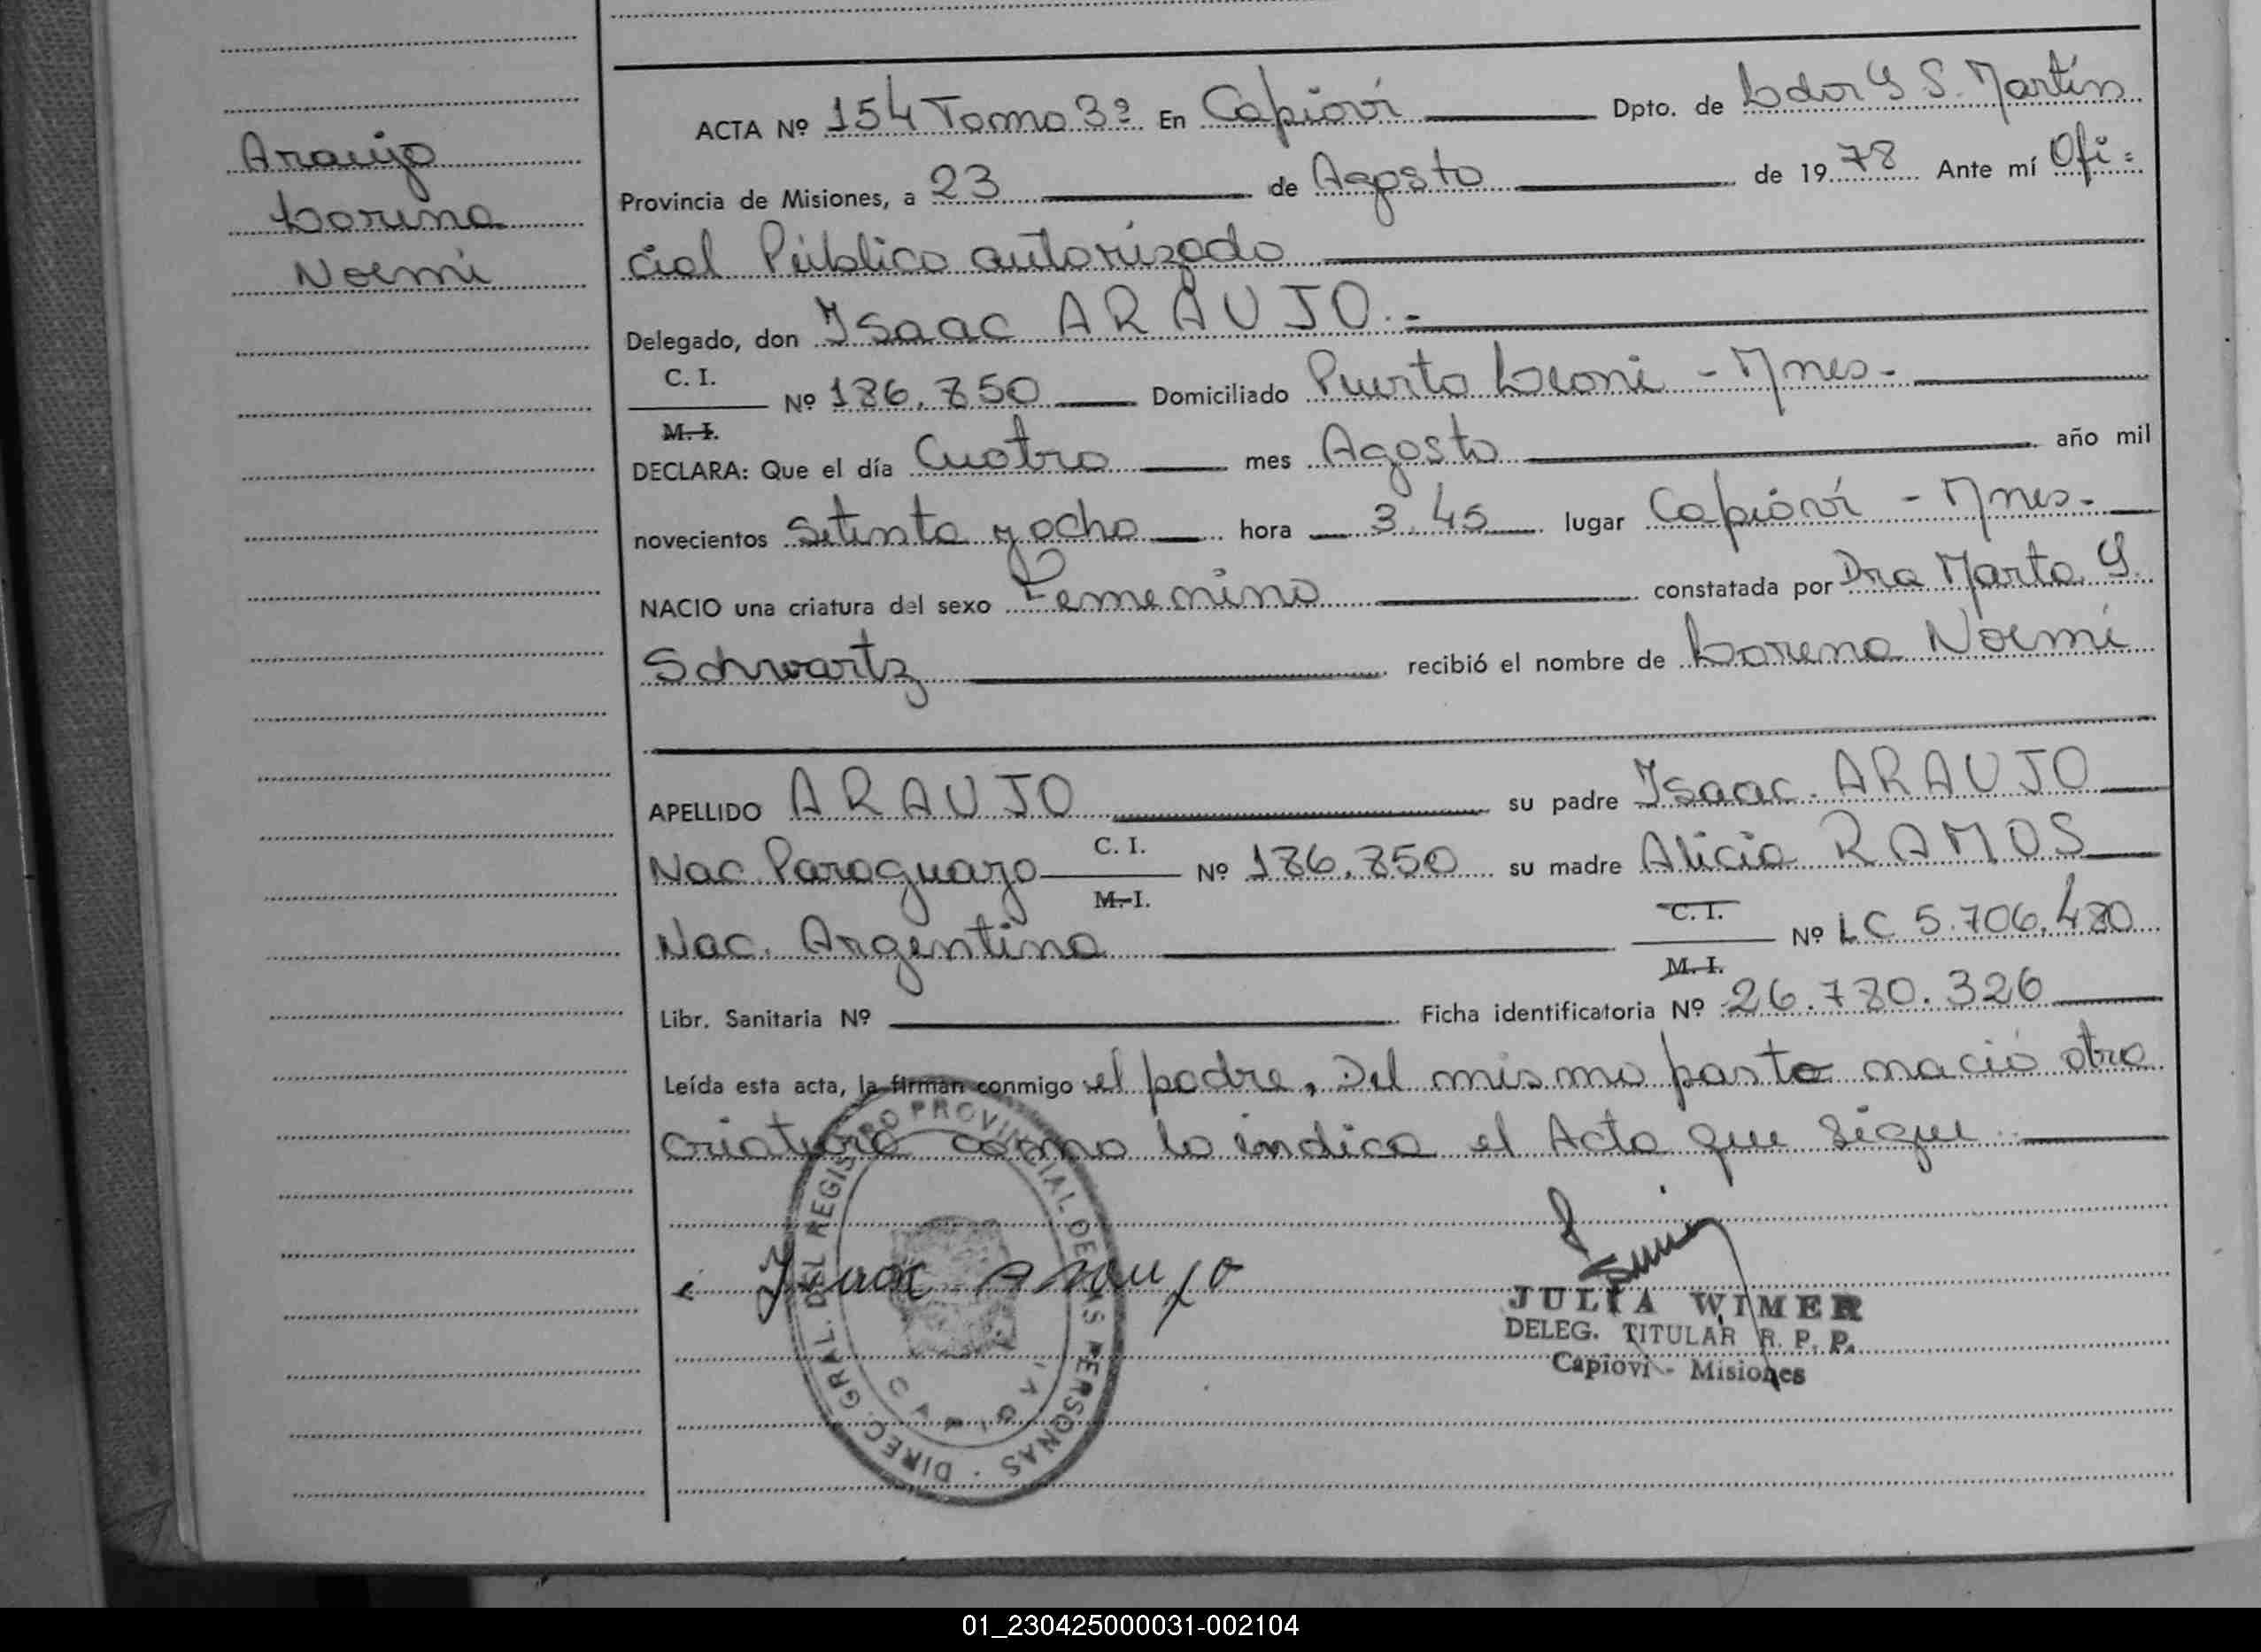 Araujo
Lorena
Noemi
ACTA Nº 154 Tomo 3º En Capioví Dpto. de Ldor G S. Martín
Provincia de Misiones, a 23 de Agosto de 1978 Ante mí Ofi=
cial Público autorizado
Delegado, don Isaac ARAUJO.-
C. I.
Nº 186.850 Domiciliado Puerto Leoni - Mnes.-
M. I.
DECLARA: Que el día Cuatro mes Agosto año mil
novecientos Setenta y ocho hora 3.45 lugar Capioví - Mnes.-
NACIO una criatura del sexo Femenino constatada por Dra Marta G.
Schwartz recibió el nombre de Lorena Noemí
APELLIDO ARAUJO su padre Isaac ARAUJO
Nac. Paraguayo C. I. Nº 186.850 su madre Alicia RAMOS
M. I.
Nac. Argentina C. I. Nº LC 5.706.480
M. I.
Libr. Sanitaria Nº Ficha identificatoria Nº 26.780.326
Leída esta acta, la firman conmigo el padre, Del mismo parto nació otra
criatura como lo indica el Acta que sigue.
Isaac Araujo
DIREC. GRAL. DEL REGISTRO PROVINCIAL DE LAS PERSONAS
CAPIOVI
JULIA WIMER
DELEG. TITULAR R. P. P.
Capioví - Misiones
01_230425000031-002104